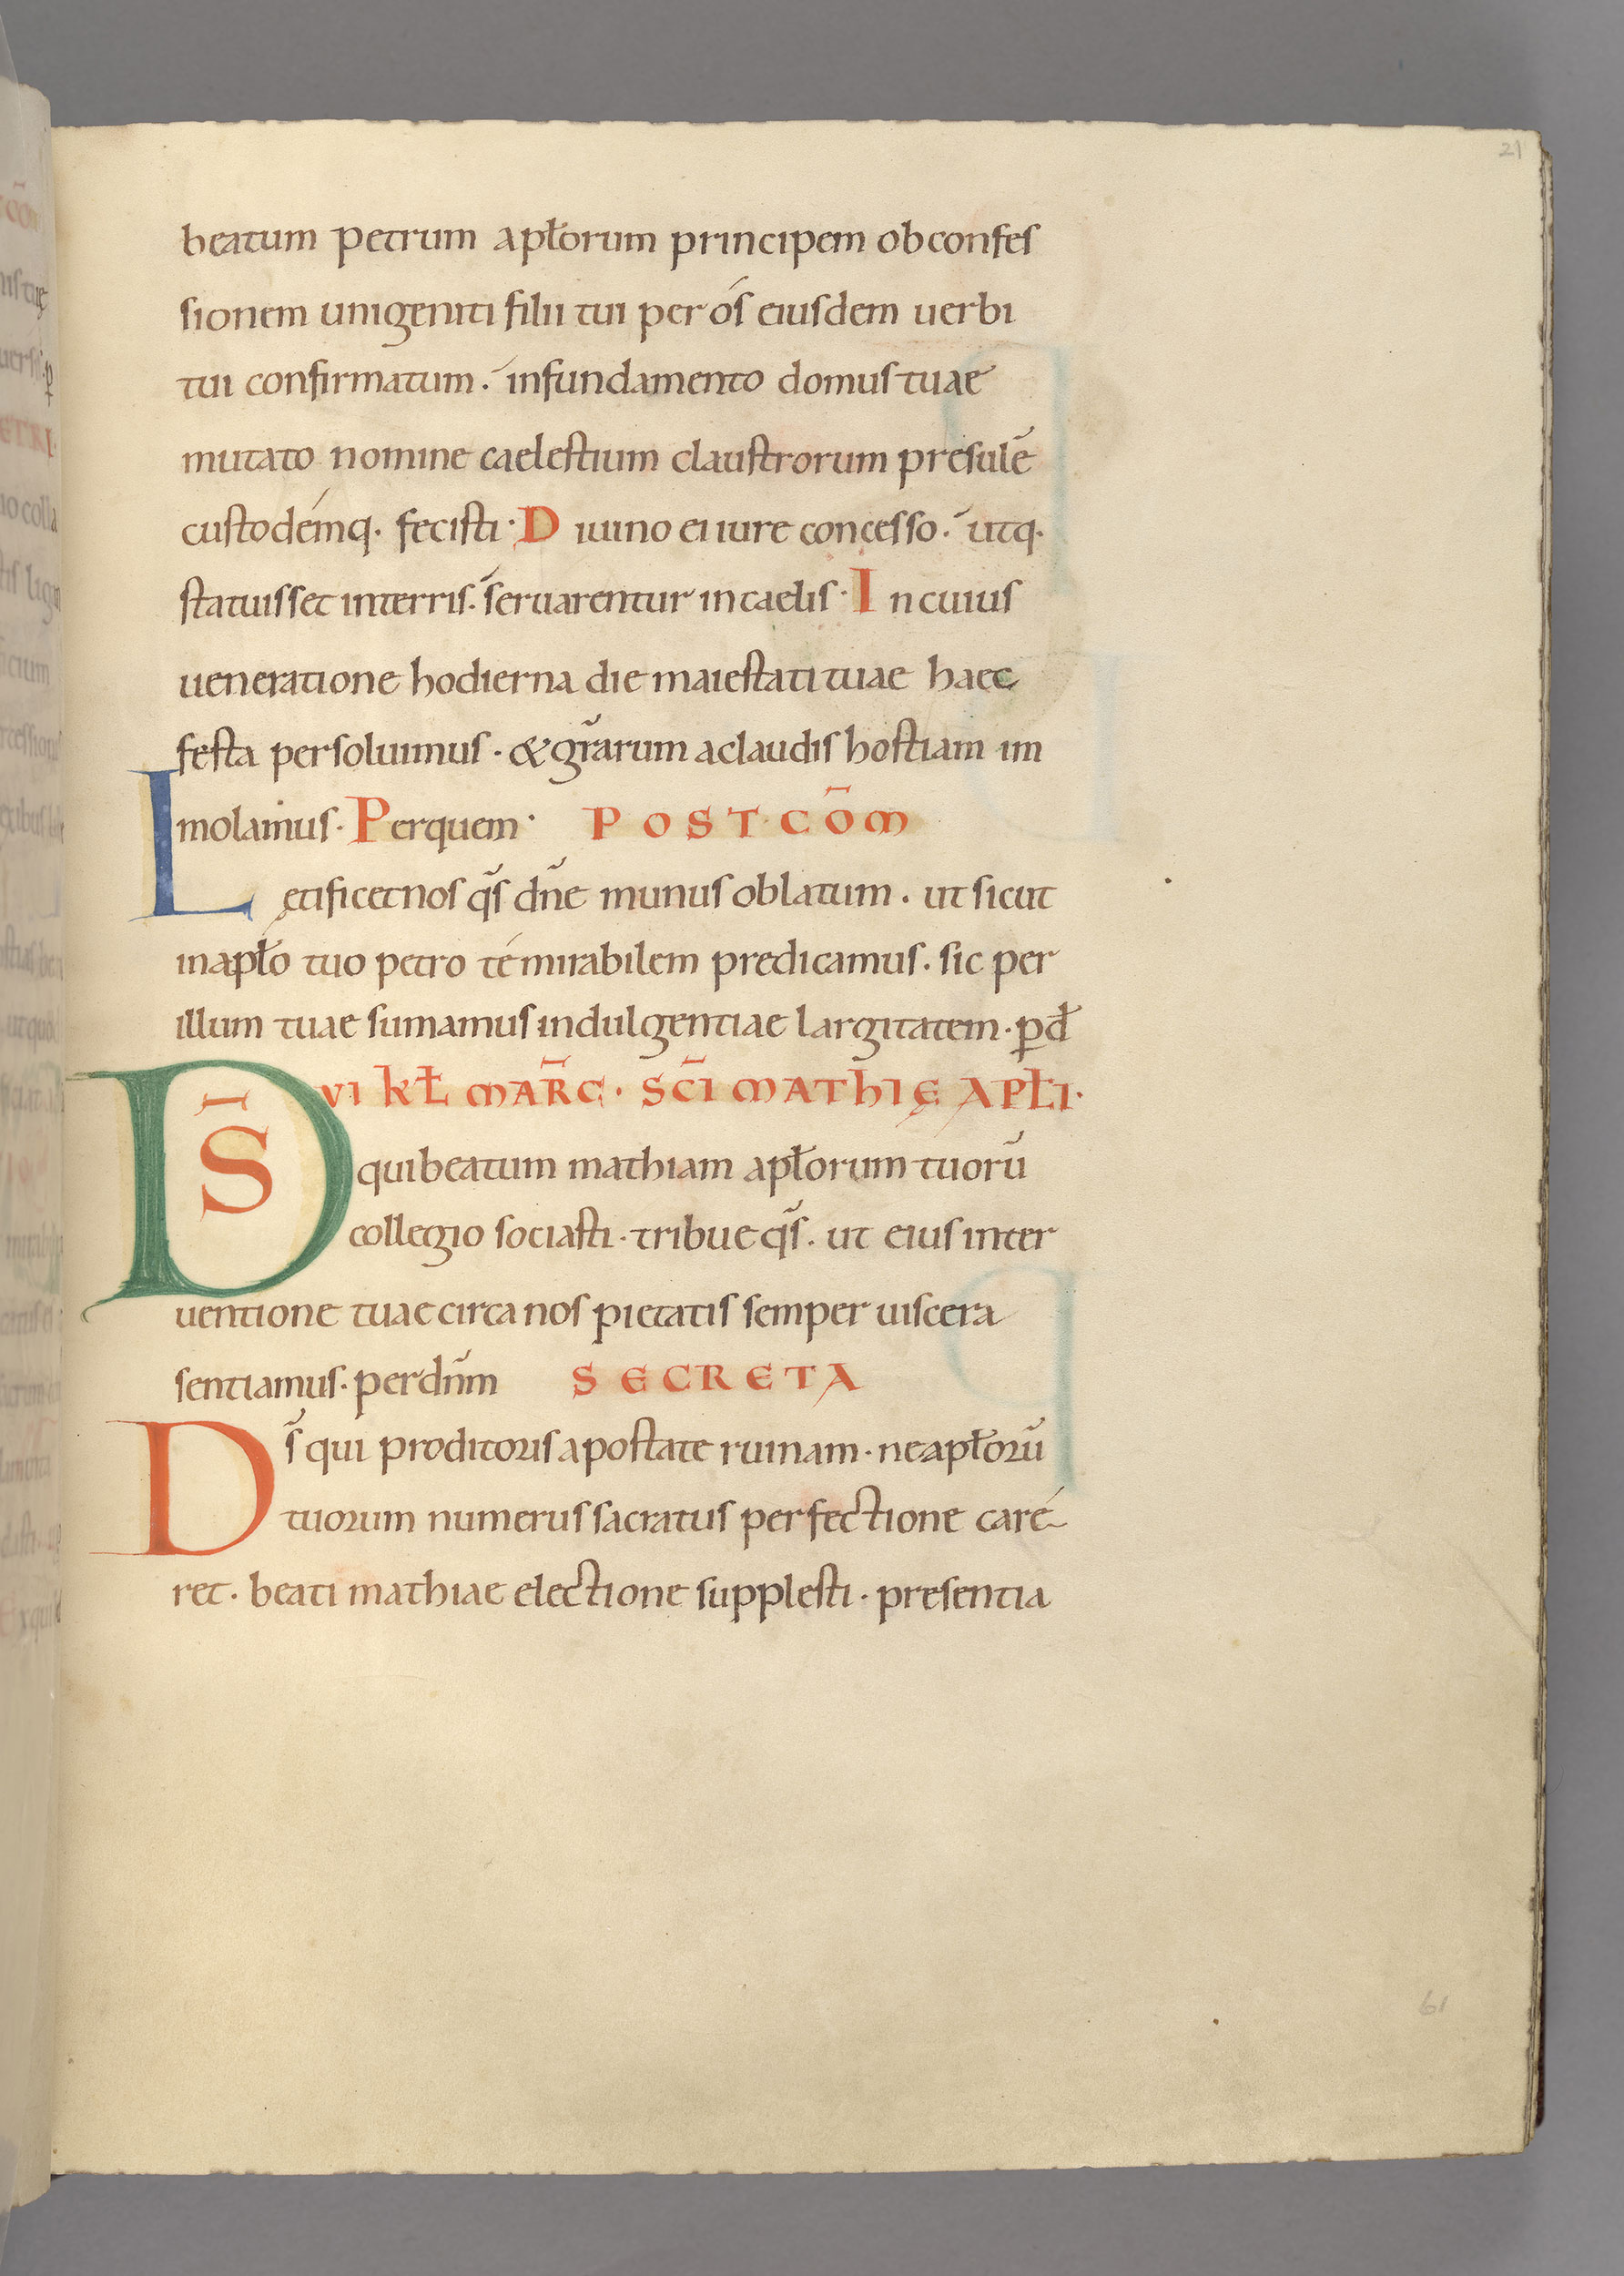 21
beatum petrum apłorum principem obconfes
sionem unigeniti filii tui per ós eiusdem uerbi
tui confirmatum. infundamento domus tuae
mutato nomine caelestium claustrorum presulē
custodémq. fecisti. Diuino ei iure concesso. utq.
statuisset interris. seruarentur in caelis. In cuius
ueneratione hodierna die maiestati tuae haec
festa persoluimus. & gr̄arum ac laudis hostiam im
molamus. Per quem. POST CŌM
Lętificet nos q̄s dn̄e munus oblatum. ut sicut
inapło tuo petro té mirabilem predicamus. sic per
illum tuae sumamus indulgentiae largitatem. ꝑ d̄
VI KŁ MAR̄C. SC̄I MATHIĘ APŁI.
DS̄ qui beatum mathiam apłorum tuorū
collegio sociasti. tribue q̄s. ut eius inter
uentione tuae circa nos pietatis semper uiscera
sentiamus. per dn̄m SECRETA
Ds̄ qui proditoris apostate ruinam. ne apłorū
tuorum numerus sacratus perfectione caré
ret. beati mathiae electione supplesti. presentia
61